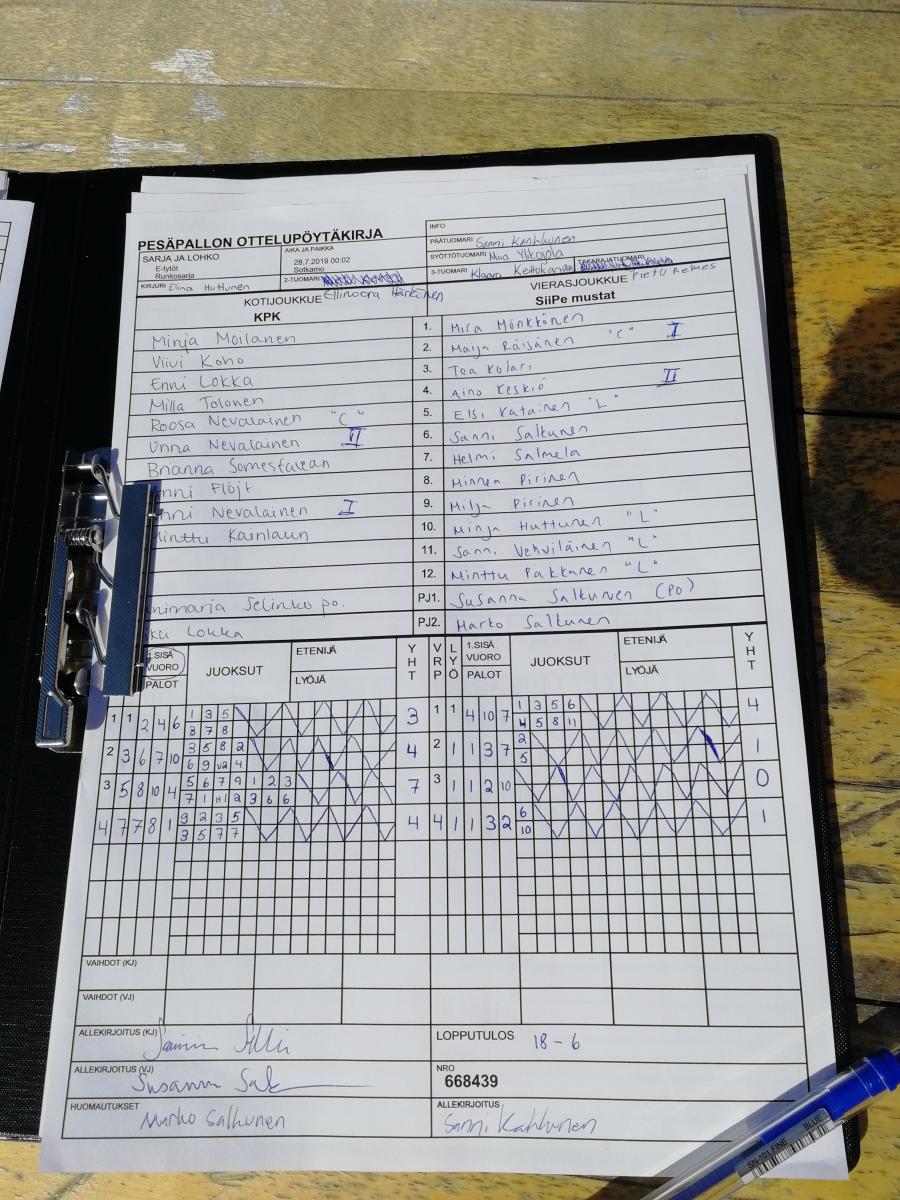 PESÄPALLON OTTELUPÖYTÄKIRJA
INFO
PÄÄTUOMARI Sanni Kahkunen
SARJA JA LOHKO
E-tytöt
Runkosarja
AIKA JA PAIKKA
28.7.2019 00:02
Sotkamo
SYÖTTÖTUOMARI Miia Ylikojola
KIRJURI Elina Huttunen
2-TUOMARI
Ellinoora Härkönen
3-TUOMARI Klaara Keltokangas
TAKARAJATUOMARI
Pietu Remes
KOTIJOUKKUE
KPK
VIERASJOUKKUE
SiiPe mustat
Minja Moilanen 1. Mira Mönkkönen
Viivi Koho 2. Maija Räisänen "C" I
Enni Lokka 3. Tea Kolari
Milla Tolonen 4. Aino Keskiö II
Roosa Nevalainen "C" 5. Elsi Katainen "L"
Unna Nevalainen II 6. Sanni Salkunen
Brianna 7. Helmi Salmela
nni Flöjt 8. Minnea Pirinen
nni Nevalainen I 9. Milja Pirinen
Minttu 10. Minja Huttunen "L"
11. Sanni Vehviläinen "L"
12. Minttu Pakkanen "L"
nimaria Selinko po. PJ1. Susanna Salkunen (PO)
ku Lokka PJ2. Marko Salkunen
1.SISÄ VUORO
PALOT
JUOKSUT
ETENIJÄ
LYÖJÄ
YHT
VRP
LYÖ
1.SISÄ VUORO
PALOT
JUOKSUT
ETENIJÄ
LYÖJÄ
YHT
1 1 2 4 6 1 3 5 3 1 1 4 10 7 1 3 5 6 4
3 7 8 4 5 8 11
2 3 6 7 10 3 5 8 2 4 2 1 1 3 7 2 1
6 9 v2 4 5
3 5 8 10 4 5 6 7 9 1 2 3 7 3 1 1 2 10 0
7 1 H1 2 3 6 6
4 7 7 8 1 9 2 3 5 4 4 1 1 3 2 6 1
3 5 7 7 10
VAIHDOT (KJ)
VAIHDOT (VJ)
ALLEKIRJOITUS (KJ)
LOPPUTULOS 18 - 6
ALLEKIRJOITUS (VJ) Susanna
NRO
668439
HUOMAUTUKSET
Marko Salkunen
ALLEKIRJOITUS
Sanni Kahkunen
SN-101 FINE BLUE